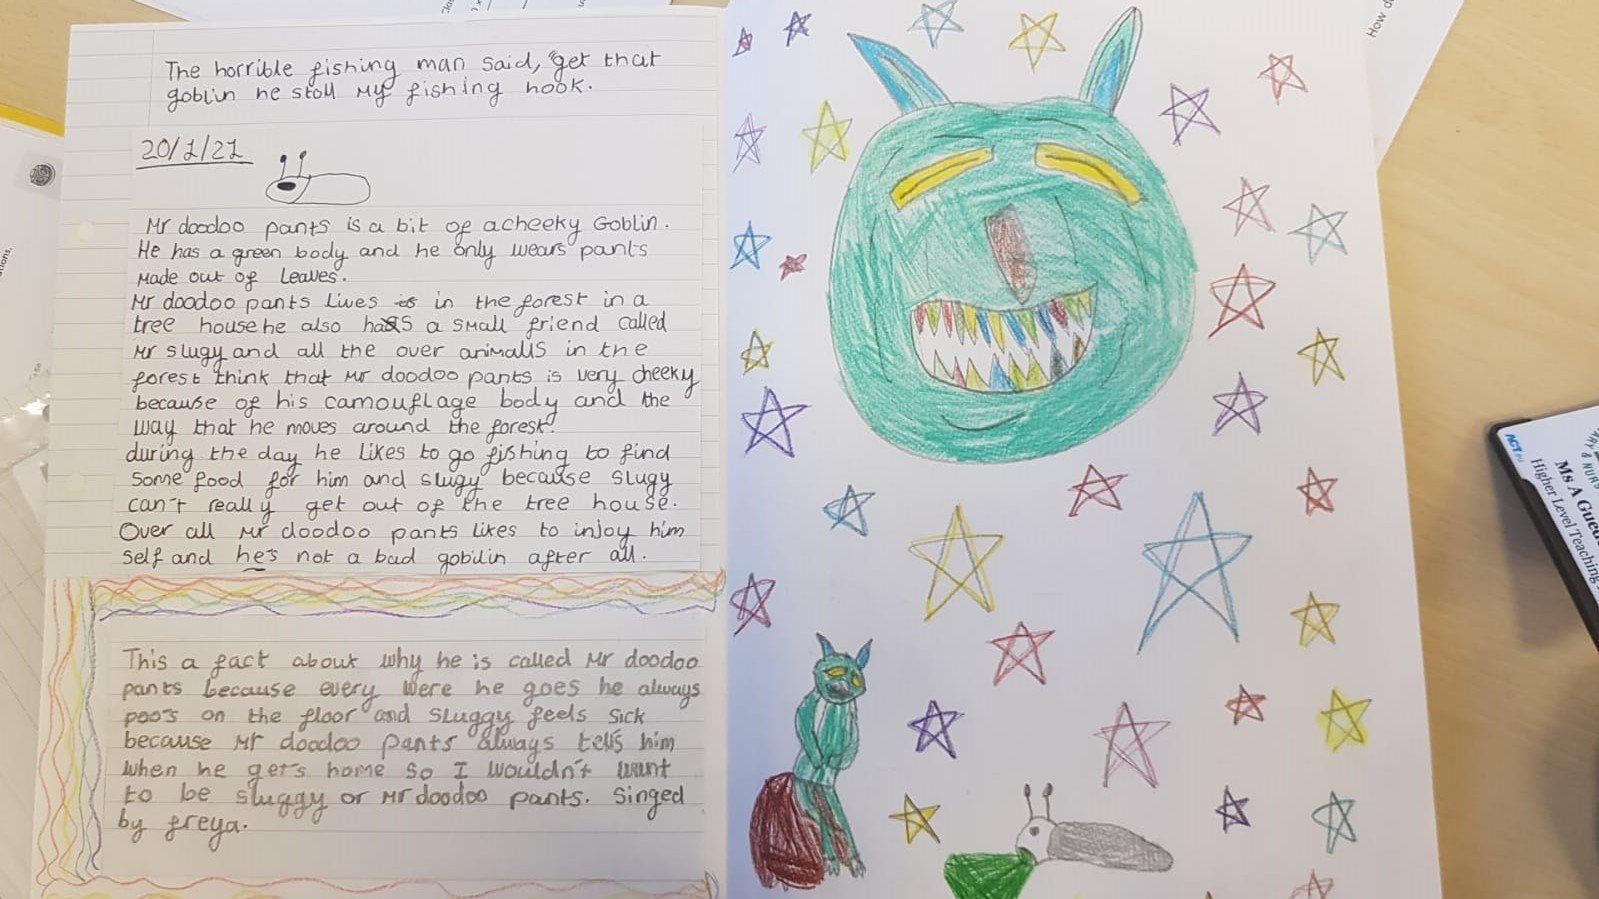 The horrible fishing man said, "get that
goblin he stoll my fishing hook.
20/1/21
Mr doodoo pants is a bit of a cheeky Goblin.
He has a green body and he only wears pants
made out of leaves.
Mr doodoo pants lives in the forest in a
tree house he also has a small friend called
Mr slugy and all the over animalls in the
forest think that Mr doodoo pants is very cheeky
because of his camouflage body and the
way that he moves around the forest.
during the day he likes to go fishing to find
some food for him and slugy because slugy
can't really get out of the tree house.
Over all Mr doodoo pants likes to injoy him
self and he's not a bad goblin after all.
This a fact about why he is called Mr doodoo
pants because every were he goes he always
poo's on the floor and sluggy feels sick
because Mr doodoo pants always tells him
when he gets home so I wouldn't want
to be sluggy or Mr doodoo pants. Singed
by freya.
How d
ACT
ARY & NURS
Ms A Gued
Higher Level Teaching